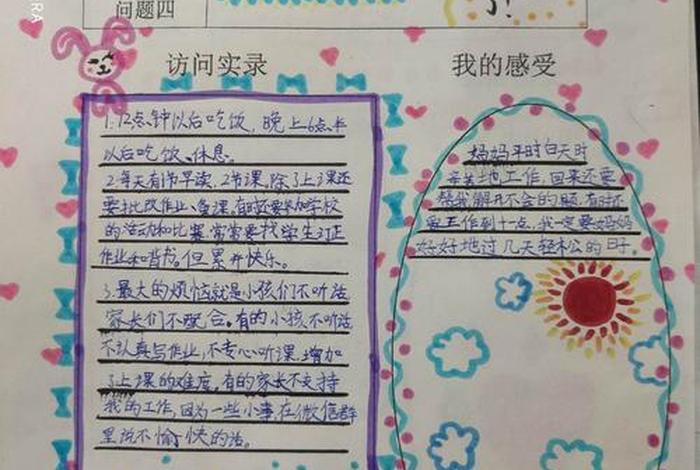 问题四
访问实录
我的感受
1.12点钟以后吃饭,晚上6点半
以后吃饭、休息。
2.每天有1节早读,2节课,除了上课还
要批改作业、备课。有时还要参加学校
的活动和比赛,常常要找学生订正
作业和背书。但累并快乐。
3.最大的烦恼就是小孩们不听话
家长们不配合。有的小孩不听话,
不认真写作业,不专心听课,增加
了上课的难度。有的家长不支持
我的工作,因为一些小事,在微信群
里说不愉快的话。
妈妈平时白天时
辛苦地工作,回来还要
帮我解开不会的题,有时还
要工作到十一点,我一定要妈妈
好好地过几天轻松的日子。